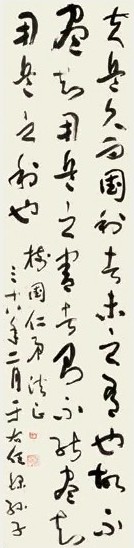 夫兵久而国利者未之有也故不
盡知用兵之害者則不能盡知
用兵之利也
国仁弟法正
三十八年二月于右任錄孫子